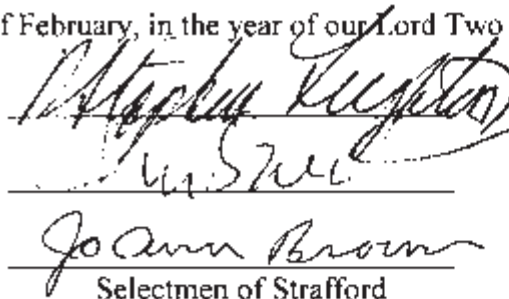 f February, in the year of our Lord Two
Stephen Leighton
JoAnn Brown
Selectmen of Strafford